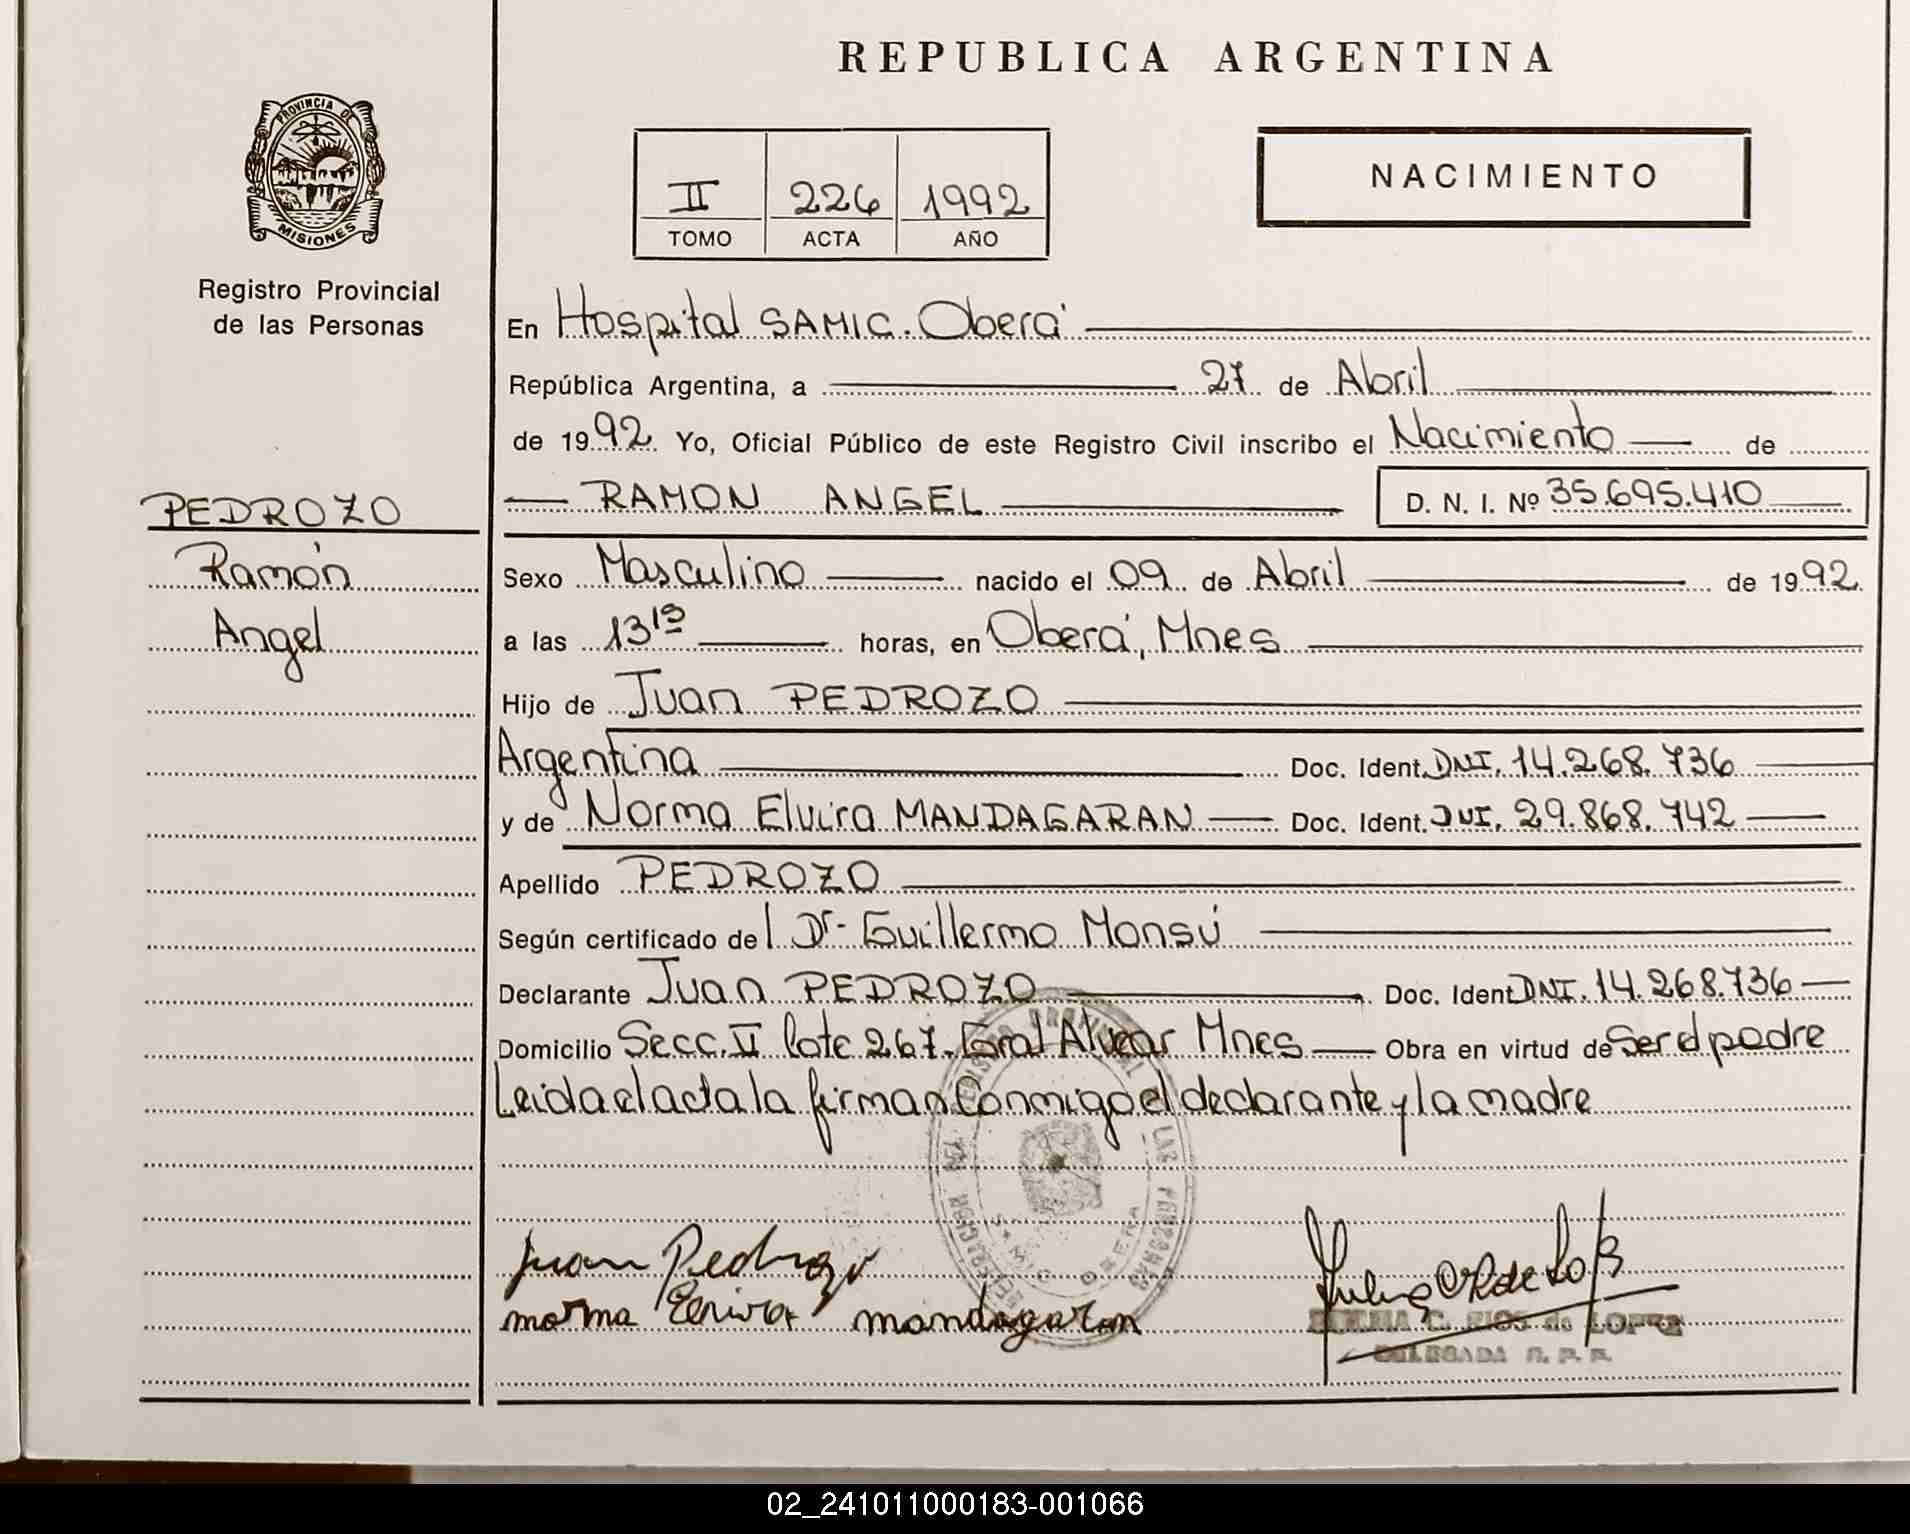 REPUBLICA ARGENTINA
PROVINCIA DE
MISIONES
Registro Provincial
de las Personas
II 226 1992
TOMO ACTA AÑO
NACIMIENTO
En Hospital SAMIC. Oberá
República Argentina, a 27 de Abril
de 1992 Yo, Oficial Público de este Registro Civil inscribo el Nacimiento de
RAMON ANGEL D. N. I. Nº 35.695.410
PEDROZO
Ramón
Angel
Sexo Masculino nacido el 09 de Abril de 1992
a las 13 15 horas, en Oberá, Mnes
Hijo de Juan PEDROZO
Argentina Doc. Ident. DNI. 14.268.736
y de Norma Elvira MANDAGARAN Doc. Ident. DNI. 29.868.742
Apellido PEDROZO
Según certificado del Dr. Guillermo Monsú
Declarante Juan PEDROZO Doc. Ident DNI. 14.268.736
Domicilio Secc. II lote 267. Gral Alvear Mnes Obra en virtud de Ser el padre
Leida el acta la firman Conmigo el declarante y la madre
Juan Pedrozo
norma Elvira mandagaran
C. RIOS de LOPEZ
DELEGADA R. P. P.
02_241011000183-001066